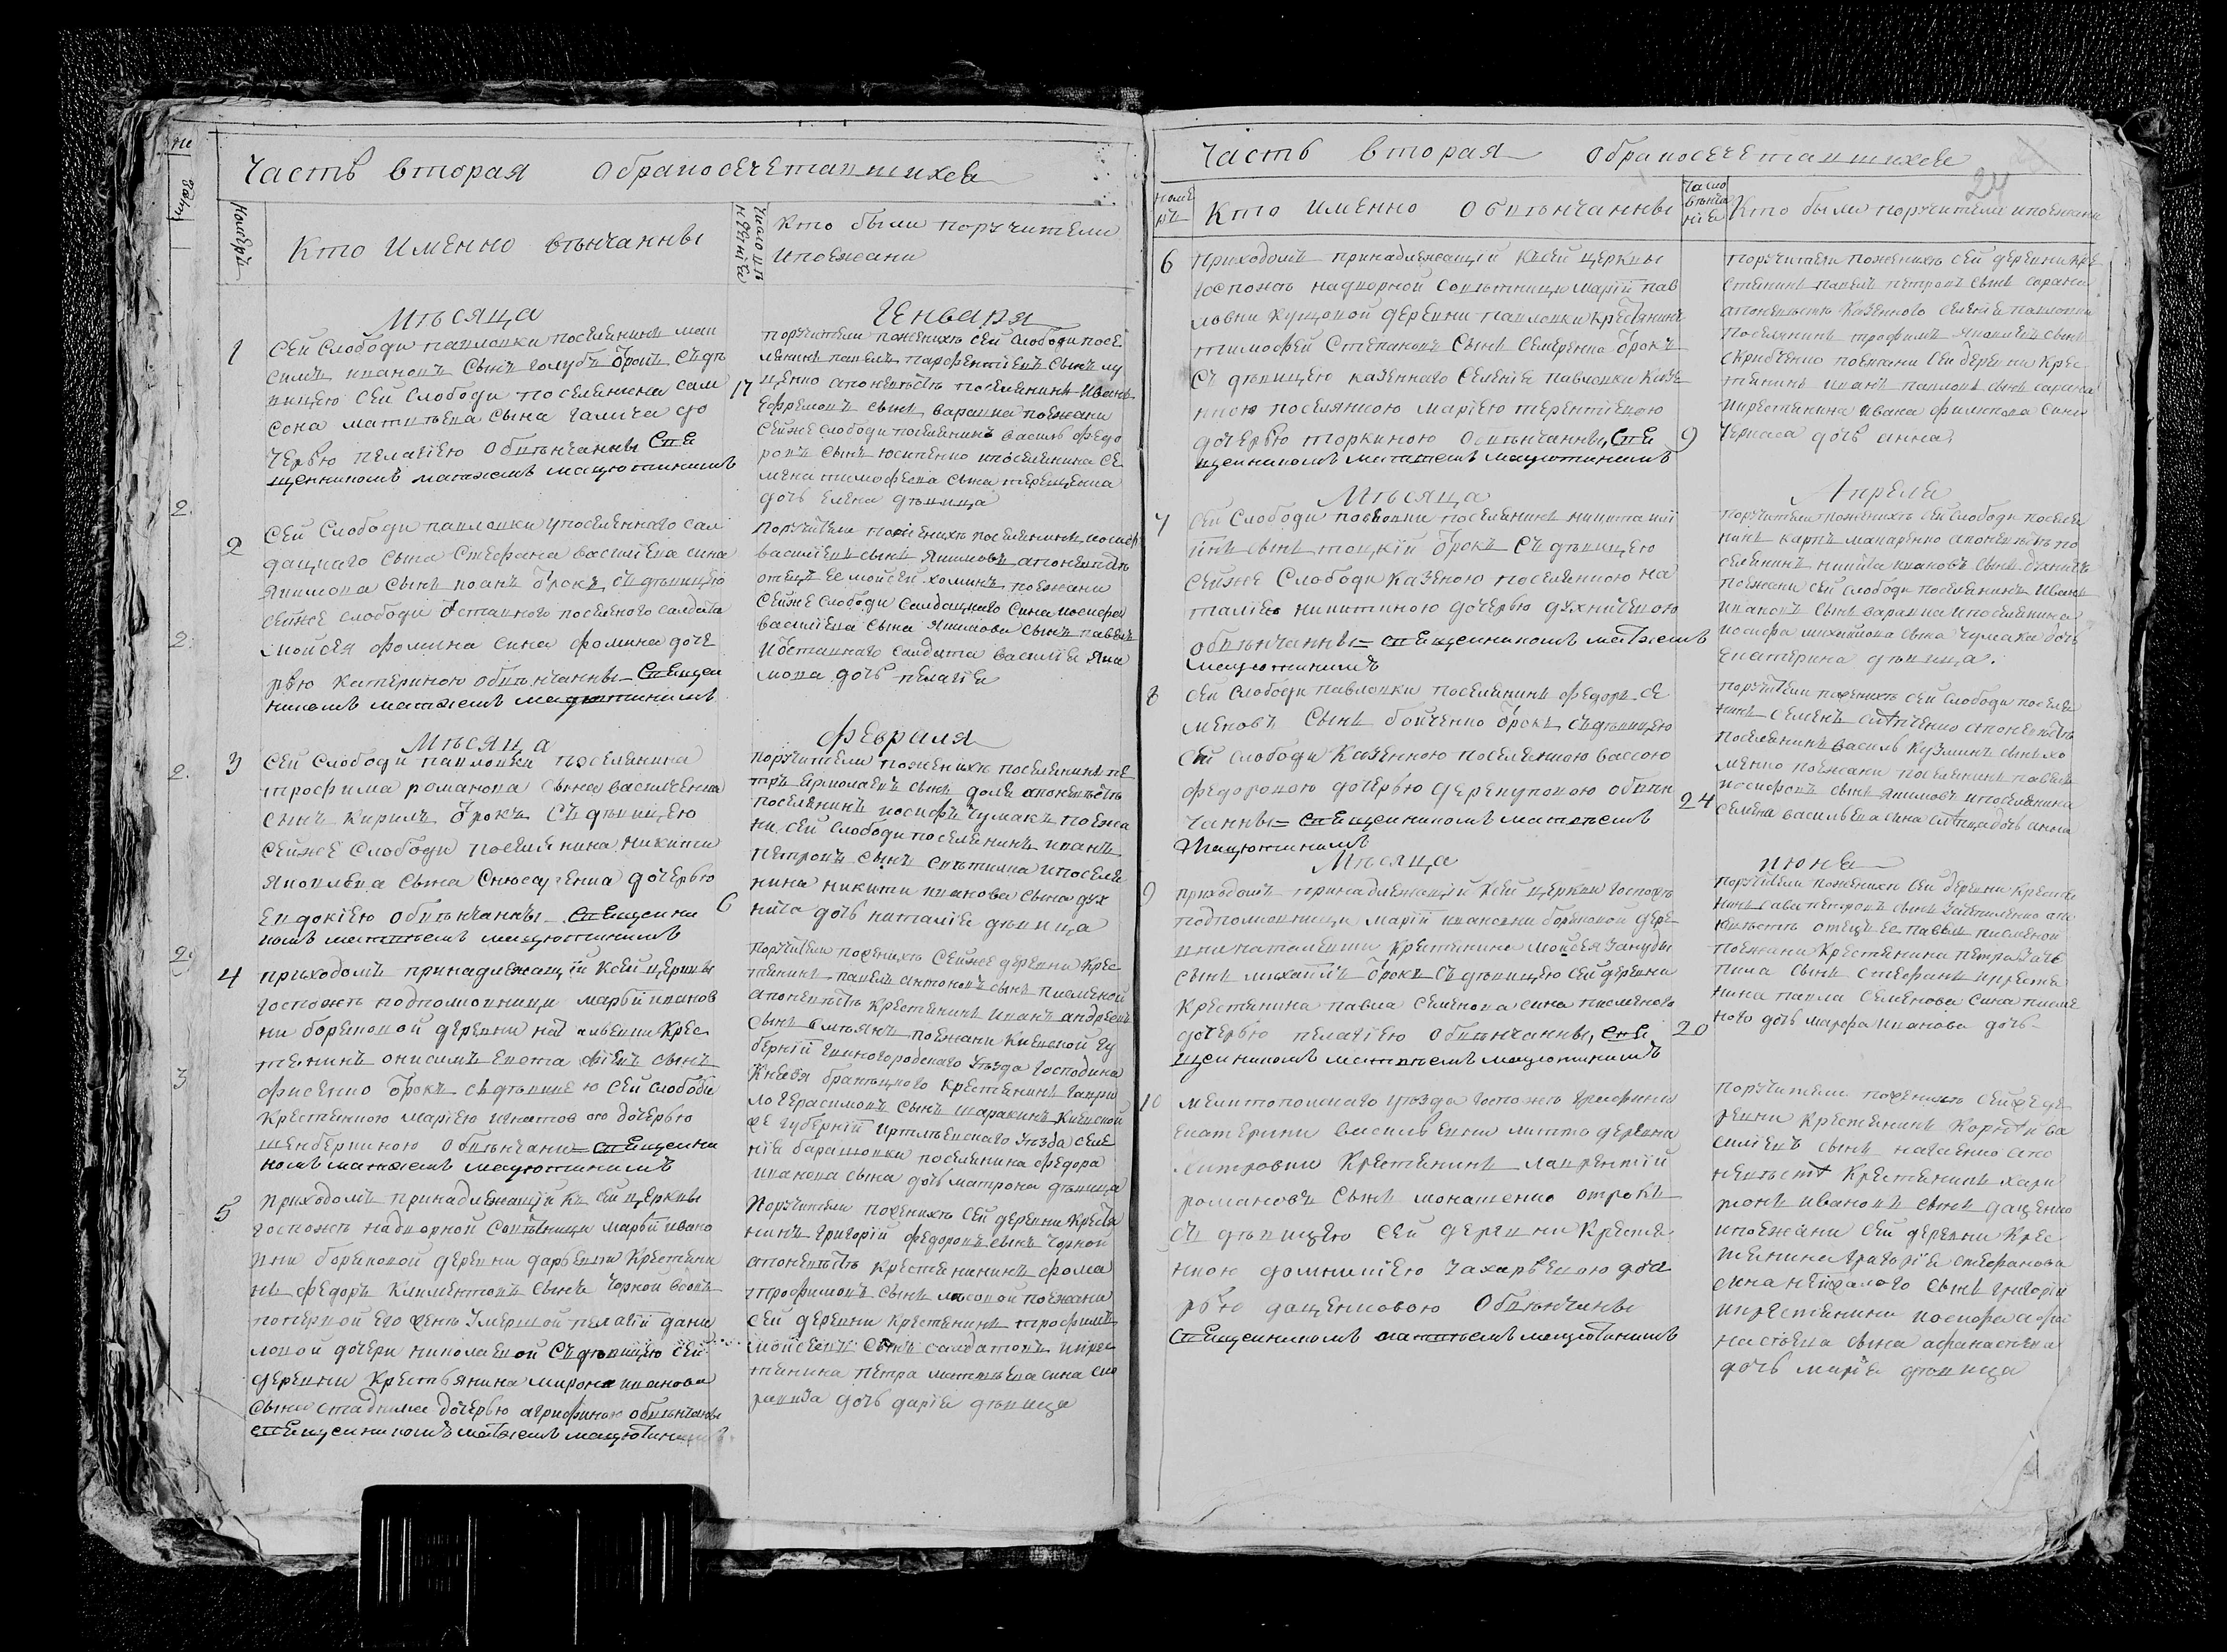 Часть вторая обракосечетавшихся
Номеръ
Кто именно вѣнчанны
Кто были поручители
ипоезжани
Мѣсяца
Генваря
1
Сей Слободи павловки поселянинъ мак
симъ ивановъ Сынъ голубъ Ѻрокъ Съ дѣ
вицею Сей Слободи поселянина сам
сона матвѣева Сына галича до
черью пелагіею Обвѣнчанны Свя
щенникомъ матвѣемъ мацютинимъ
17
поручители поженихѣ Сей Слободи посе
лянинъ павелъ парфентіевъ Сынъ лу
ценко апоневѣстѣ поселянинъ Иванъ
Ефремовъ Сынъ варавка поезжани
Сейже Слободи поселянинъ василь федо
ровъ Сынъ юсипенко ипоселянина Се
мена тимофеева Сына терещенка
дочь Елена дѣвица
2
Сей Слободи павловки упоселеннаго сал
дацкаго Сына Стефана василіева сина
якимова Сынъ иоанъ Ѻрокъ съ дѣвицею
сейже слободи Ѻставного поселеного салдата
мойсея фомина сина фомина доче
рью катериною обвѣнчанны Священ
никомъ матвѣемъ мацютинимъ
поручители поженихѣ поселянинъ иосифъ
василіевъ сынъ якимовъ апоневѣстѣ
отецъ Ее мойсей хоминъ поезжани
Сейже Слободи Салдацкаго Сина иосифа
василіева Сына якимова Сынъ павелъ
иѺставнаго Салдата василіе яки
мова дочь пелагіе
Мѣсяца
февраля
3
Сей Слободи павловки поселянина
трофима романова Сына василченка
сынъ кирилъ Ѻрокъ Съ дѣвицею
Сейже Слободи поселянина никити
яковлева Сына Снюсаренка дочерью
Евдокіею обвѣнчанны Священни
комъ матвѣемъ мацютинимъ
6
поручители поженихѣ поселянинъ пе
тръ Ермолаевъ Сынъ доля апоневѣстѣ
поселянинъ иосифъ чумакъ поезжа
ни Сей Слободи поселянинъ иванъ
петровъ Сынъ Снѣтилка ипоселя
нина никити иванова Сына дух
нича дочь наталіе дѣвица
4
приходомъ принадлежащій ксей церкви
госпожѣ подполковници маріи иванов
ни борековой деревни наталевки Крес
тянинъ онисимъ Евстафіевъ сынъ
фисенко Ѻрокъ съ дѣвицею Сей слободи
Крестянкою маріею игнатовою дочерью
шендеркиною обвѣнчани Священни
комъ матвѣемъ мацютинимъ
поручители поженихѣ Сейже деревни Крес
тянинъ павелъ антоновъ сынъ писменой
апоневѣстѣ Крестянинъ иванъ андреевъ
Сынъ поезжани Киевской гу
берніи Звиногородскаго Уѣзда господина
Князя браницкого Крестянинъ гаври
ло герасимовъ Сынъ шаракинъ Киевской
же губерніи уѣзда Селе
ніе барашовки поселянина федора
иванова сына дочь матрона дѣвица
5
Приходомъ принадлежащій къ Сей церкви
госпожѣ надворной Совѣтници маріи ивано
вни борековой деревни даревки Крестяни
нъ федоръ Климентовъ Сынъ чорной вдовъ
попервой Его женѣ Умершой пелагіи дани
ловой дочери николаевой Съ дѣвицею Сей
деревни Крестьянина мирона иванова
Сына стадника дочерью агрифиною обвѣнчанны
Священникомъ матвѣемъ мацютинимъ
Поручители поженихѣ Сей деревни Крестя
нинъ григорій федоровъ сынъ чорной
апоневѣстѣ Крестянинъ фома
трофимовъ Сынъ лисовой поезжани
Сей деревни Крестянинъ трофимъ
мойсеевъ Сынъ салдатовъ икрес
тянина петра матвѣева сина
дочь даріе дѣвица
Часть вторая обракосечетавшихся
24
Номе
ръ
Кто именно Обвѣнчанны
Число
вѣнча
ніе
Кто были поручители ипоезжани
6
приходомъ принадлежащій ксей церкви
госпожѣ надворной Совѣтници маріи пав
ловни Кущовой деревни павловки Крестянинъ
тимофей Степановъ Сынъ Семеренко Ѻрокъ
Съ дѣвицею казенного Селеніе павловки Казе
нною поселянкою маріею терентіевою
дочерью торкиною Обвѣнчанны Свя
щенникомъ матвѣемъ мацютинимъ
9
поручители поженихѣ Сей деревни кре
стянинъ павелъ петровъ Сынъ сарана
апоневѣстѣ Казенного Селеніе павловки
поселянинъ трофимъ яковлевъ Сынъ
скрибченко поезжани Сей деревни Крес
тянинъ иванъ павловъ Сынъ сарана
икрестянина ивана филипова Сина
черкаса дочь анна
Мѣсяца
Апреля
7
Сей Слободи повловки поселянинъ никита илі
инъ сынъ тоцкій Ѻрокъ Съ дѣвицею
Сейже Слободи казеною поселянкою на
таліею никитиною дочерью духничевою
обвѣнчанны Священникомъ матвѣемъ
мацютинимъ
поручители поженихѣ Сей Слободи поселя
нинъ карпъ макаренко апоневѣстѣ по
селянинъ никита ивановъ Сынъ духничъ
поезжани Сей Слободи поселянинъ иванъ
ивановъ Сынъ варавка ипоселянина
иосифа михайлова Сына чумака дочь
Екатерина дѣвица.
8
Сей Слободи павловки поселянинъ федоръ Се
меновъ Сынъ бойченко Ѻрокъ Съ дѣвицею
Сей Слободи Казенною поселянкою вассою
федоровою дочерью деревуновою обвѣн
чанны Священникомъ матвѣемъ
Мацютинимъ
24
поручители поженихѣ Сей Слободи поселя
нинъ Семенъ апоневѣстѣ
поселянинъ василь кузминъ Сынъ хо
менко поезжани поселянинъ павелъ
иосифовъ Сынъ якимовъ ипоселянина
Семена васильева Сина дочь анна
Мѣсяца
июня
9
приходомъ принадлежащій ксей церкви госпожѣ
подполковници маріи ивановни борековой дере
вни наталевки Крестянина мойсея зануды
Сынъ михайлъ Ѻрокъ Съ дѣвицею Сей деревни
Крестянина павла Семенова сина писменого
дочерью пелагіею Обвѣнчанны, Свя
щенникомъ матвѣемъ мацютинимъ
20
поручители поженихѣ Сей деревни крестя
нинъ Сава петровъ Сынъ апо
невѣстѣ отецъ Ее павелъ писменой
поезжани Крестянина петра
Сынъ Стефанъ икрестя
нина павла Семенова Сина писме
ного дочь марфа иванова дочь
10
мелитополскаго уѣзда госпожѣ графини
Екатерини васильевни литто деревни
дмитровки Крестянинъ лаврентій
романовъ Сынъ монашенко отрокъ
Съ дѣвицею Сей деревни Крестя
нкою домникіею захарьевою доче
рью даценковою Обвѣнчанны
Священникомъ матвѣемъ мацютинимъ
поручители поженихѣ Сейже де
ревни Крестянинъ Корнѣй ва
силіевъ Сынъ апо
невѣстѣ Крестянинъ хари
тонъ ивановъ Сынъ даценко
ипоезжани Сей деревни Крес
тянина григоріе стефанова
сина Сынъ григорій
икрестянина иосифа афа
насіева Сына афанасіева
дочь маріе дѣвица